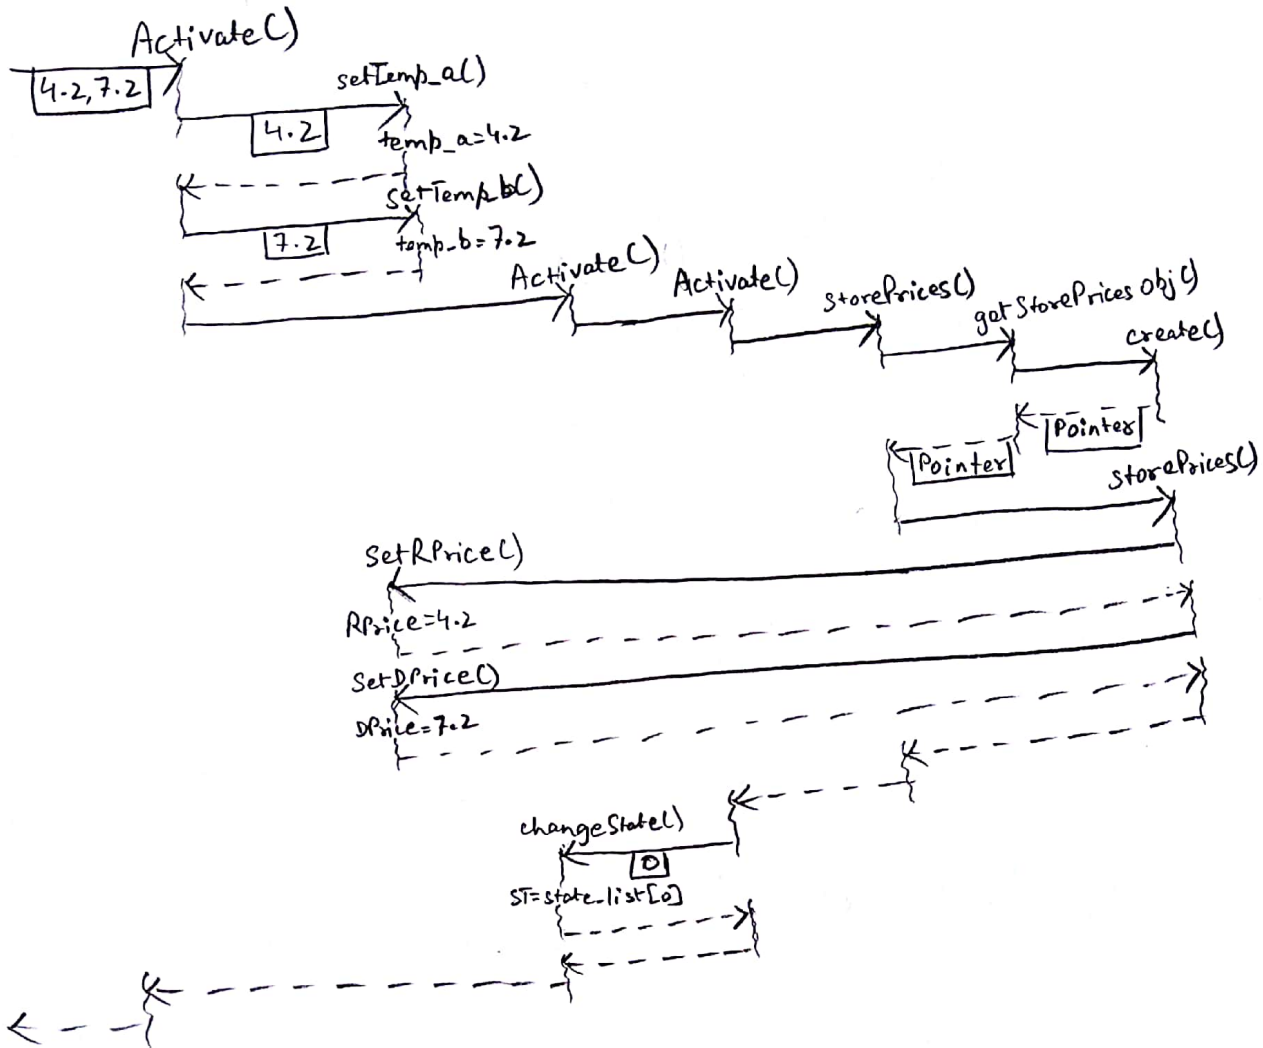 Activate()
4.2, 7.2
setTemp_a()
4.2
temp_a=4.2
setTemp_b()
7.2
temp_b=7.2
Activate()
Activate()
storePrices()
getStorePrices Obj()
create()
Pointer
Pointer
storePrices()
SetRPrice()
RPrice=4.2
SetDPrice()
DPrice=7.2
changeState()
0
ST=state_list[0]